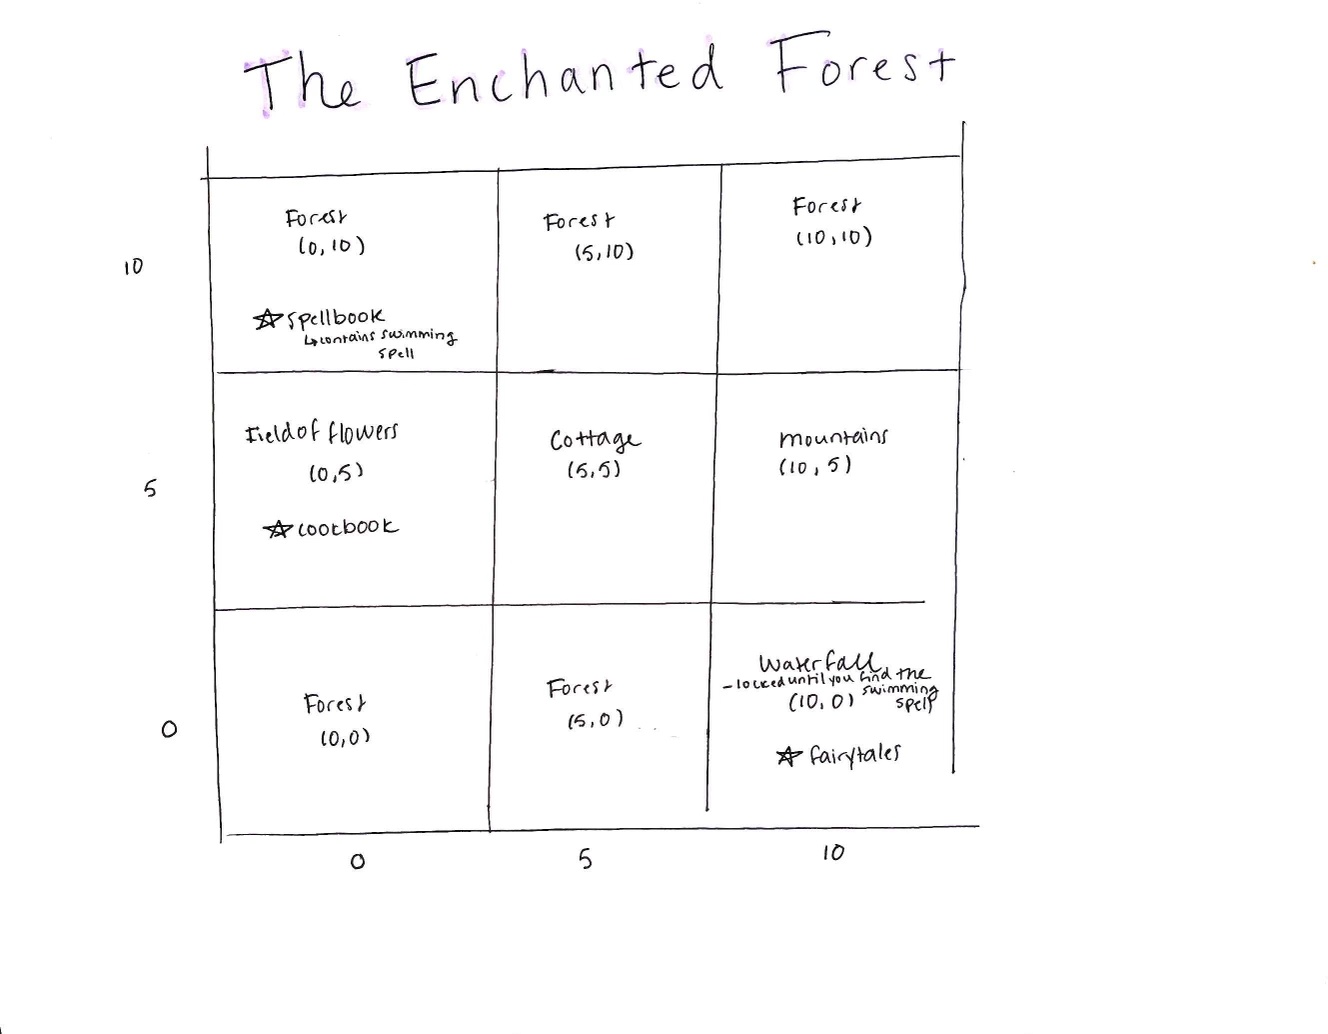 The Enchanted Forest
Forest
(0,10)
☆ spellbook
↳ contains swimming
spell
Forest
(5,10)
Forest
(10,10)
10
Field of flowers
(0,5)
☆ cookbook
Cottage
(5,5)
mountains
(10,5)
5
Forest
(0,0)
Forest
(5,0)
Waterfall
- locked until you find the
swimming
(10,0)
spell
☆ fairytales
0
0
5
10